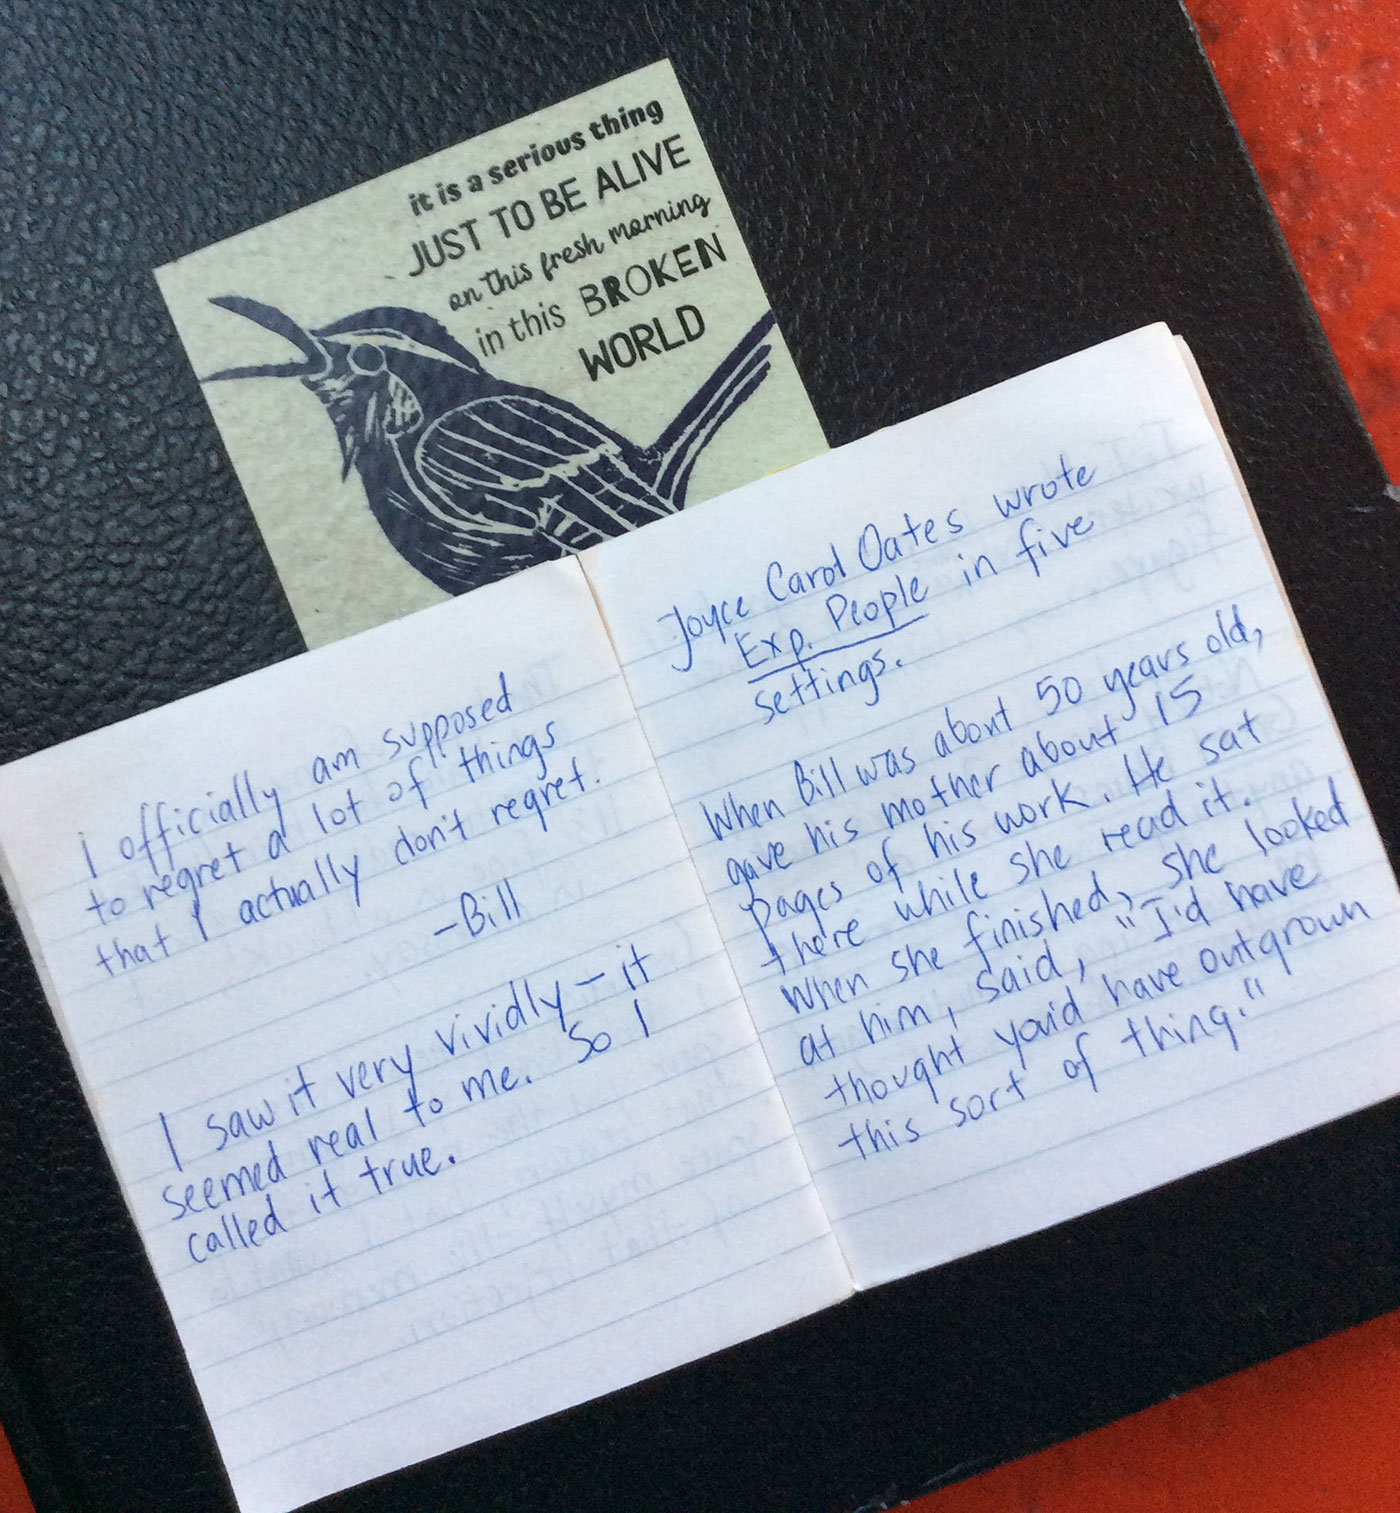 it is a serious thing
JUST TO BE ALIVE
on this fresh morning
in this BROKEN
WORLD
I officially am supposed
to regret a lot of things
that I actually don't regret.
-Bill
I saw it very vividly - it
seemed real to me. So I
called it true.
Joyce Carol Oates wrote
Exp. People in five
settings.
When Bill was about 50 years old,
gave his mother about 15
pages of his work. He sat
there while she read it.
When she finished, she looked
at him, said, "I'd have
thought you'd have outgrown
this sort of thing."